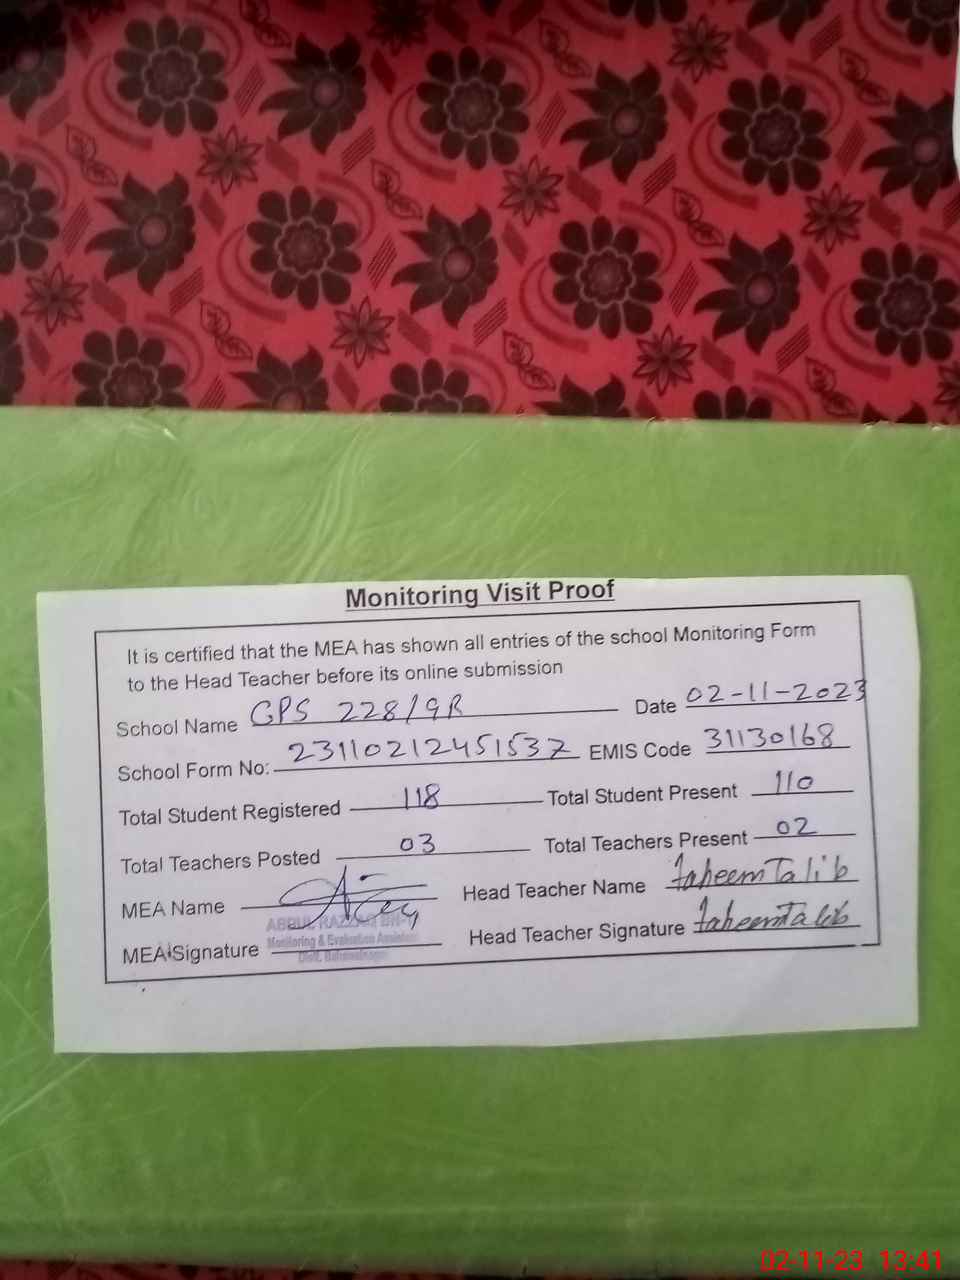 Monitoring Visit Proof
It is certified that the MEA has shown all entries of the school Monitoring Form
to the Head Teacher before its online submission
School Name GPS 228/9R Date 02-11-2023
School Form No: 23110212451537 EMIS Code 31130168
Total Student Registered 118 Total Student Present 110
Total Teachers Posted 03 Total Teachers Present 02
MEA Name Head Teacher Name faheem Talib
ABDUL RAZZAQ
MEA Signature Head Teacher Signature faheem Talib
Monitoring & Evaluation Assistant
Distt. Bahawalnagar
02-11-23 13:41